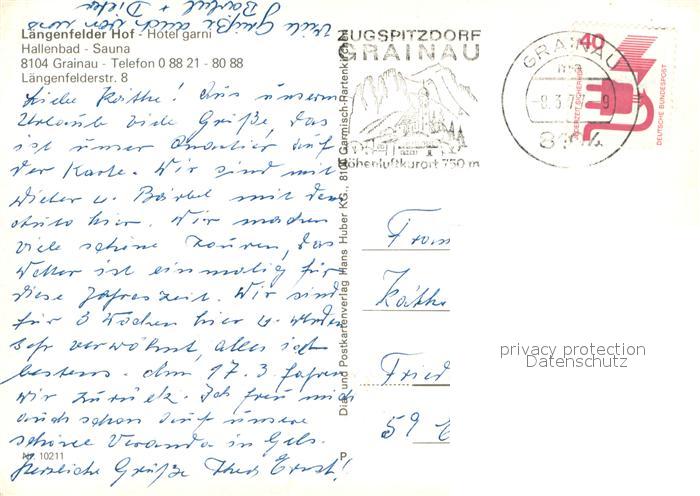 Viele Grüße auch von uns
Bärbel + Dieter
Längenfelder Hof - Hotel garni
Hallenbad - Sauna
8104 Grainau - Telefon 0 88 21 - 80 88
Längenfelderstr. 8
Liebe Käthe! Aus unserm
Urlaub viele Grüße, das
ist unser Quartier auf
der Karte. Wir sind mit
Dieter u. Bärbel mit dem
Auto hier. Wir machen
viele schöne Touren, das
Wetter ist einmalig für
diese Jahreszeit. Wir sind
für 3 Wochen hier u. werden
sehr verwöhnt, alles ist
bestens. Am 17.3. fahren
wir zurück. Ich freu mich
auch schon auf unsere
schöne Veranda in Gels.
Herzliche Grüße Ernst!
Nr. 10211
Dia- und Postkartenverlag Hans Huber KG., 8100 Garmisch-Partenkirchen
P
ZUGSPITZDORF
GRAINAU
Höhenluftkurort 750 m
GRAINAU
-8.3.7 -9
8104
40
JEDERZEIT SICHERHEIT
DEUTSCHE BUNDESPOST
Frau
Käthe
Fried
59
privacy protection
Datenschutz